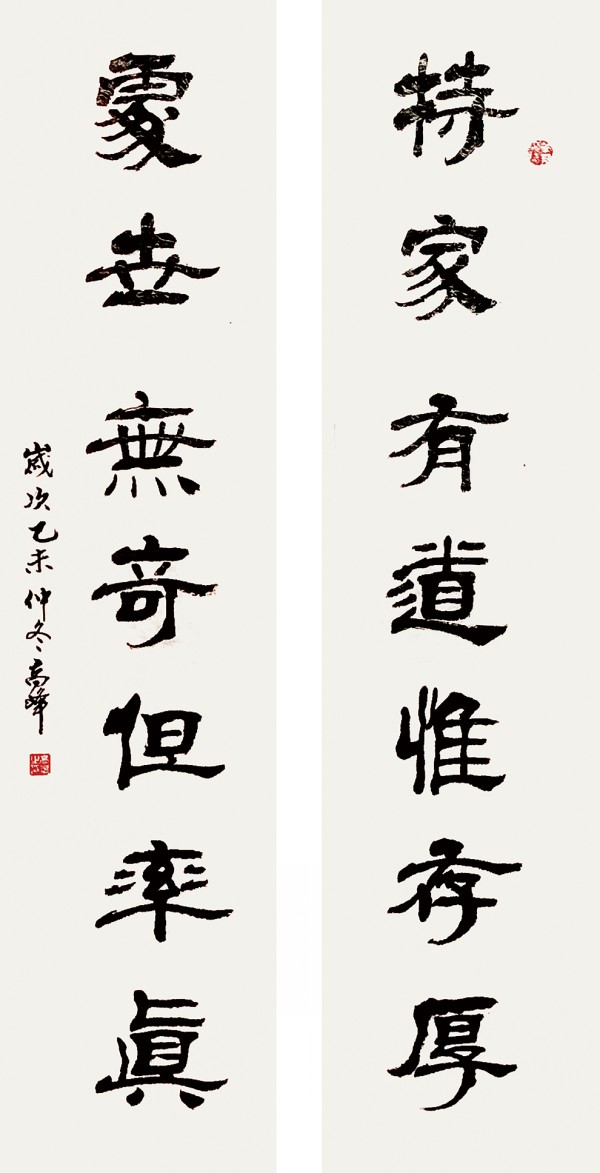 持家有道惟存厚
處世無奇但率眞
歲次乙未仲冬高峰